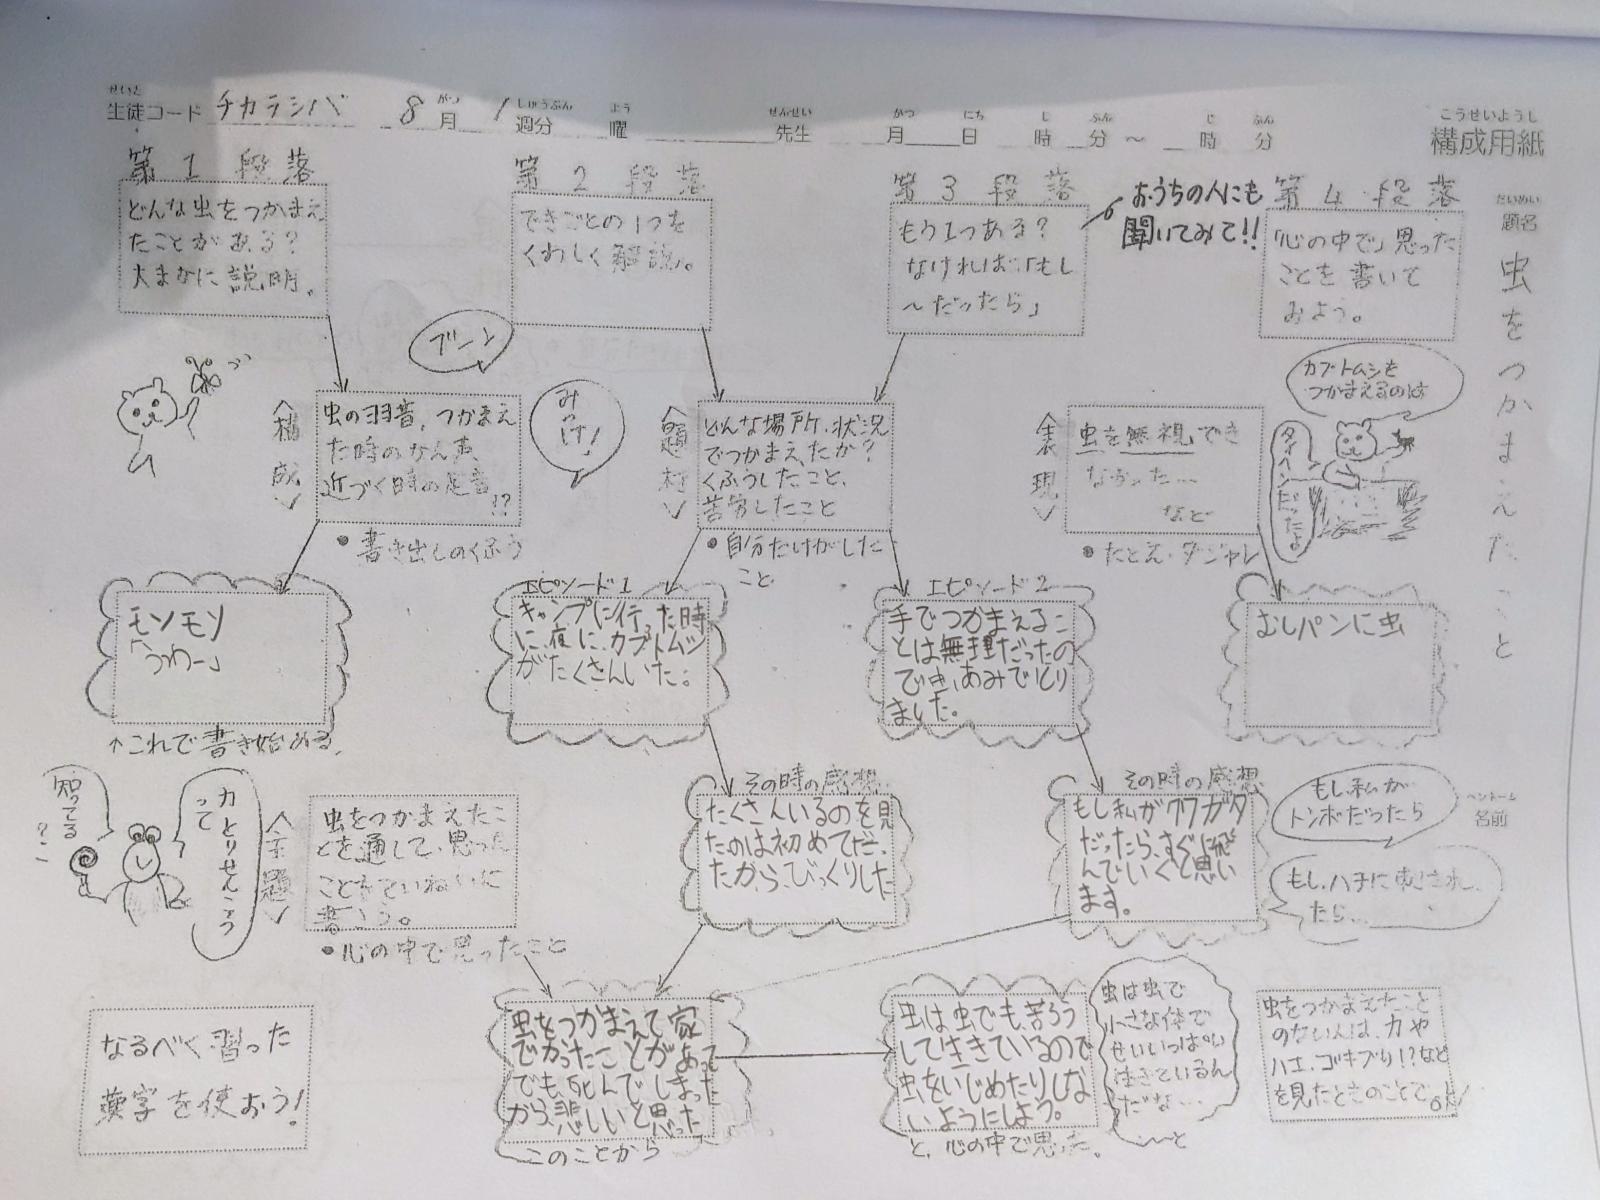 せいと
生徒コード チカラシバ 8月 1週分 曜 先生 月 日 時 分 〜 時 分
がつ しゅうぶん よう せんせい がつ にち じ ふん じ ふん
こうせいようし
構成用紙
だいめい
題名
虫をつかまえたこと
第1段落
どんな虫をつかまえ
たことがある?
大まかに説明。
第2段落
できごとの1つを
くわしく解説。
第3段落
もう1つある?
なければ「もし
〜だったら」
おうちの人にも
聞いてみて!!
第4段落
「心の中で」思った
ことを書いて
およう。
ブーン
みっけ!
カブトムシを
つかまえるのは
タイヘンだったよ
<構成>
虫の羽音、つかまえ
た時のなん声、
近づく時の足音
!?
・書き出しのくふう
<題材>
どんな場所、状況
でつかまえたか?
くふうしたこと、
苦労したこと
・自分だけがした
こと
<表現>
虫を無視でき
なかった…
など
・たとえ・ダジャレ
モソモソ
「うわー」
↑これで書き始める。
エピソード1
キャンプに行った時
に、夜に、カブトムシ
がたくさんいた。
エピソード2
手でつかまえるこ
とは無理だったの
でき、あみでとり
ました。
むしパンに虫
知ってる
?
カとりせんこう
って
<主題>
虫をつかまえたこ
とを通して、思った
ことをていねいに
書こう。
・心の中で思ったこと
その時の感想
たくさんいるのを見
たのは初めてだっ
たから、びっくりした
その時の感想
もし私がクワガタ
だったら、すぐに飛
んでいくと思い
ます。
もし私が
トンボだったら
もし、ハチに刺され
たら…
ペンネーム
名前
なるべく習った
漢字を使おう!
虫をつかまえて家
でかったことがあって
でも、死んでしまった
から、悲しいと思った
このことから
虫は虫でも、苦ろう
して生きているので
虫をいじめたりしな
いようにしよう。
と、心の中で思った。
虫は虫で
小さな体で
せいいっぱい
生きているん
だな…
〜と
虫をつかまえたこと
のない人は、カや
ハエ、ゴキブリ!?など
を見たときのことでOK!